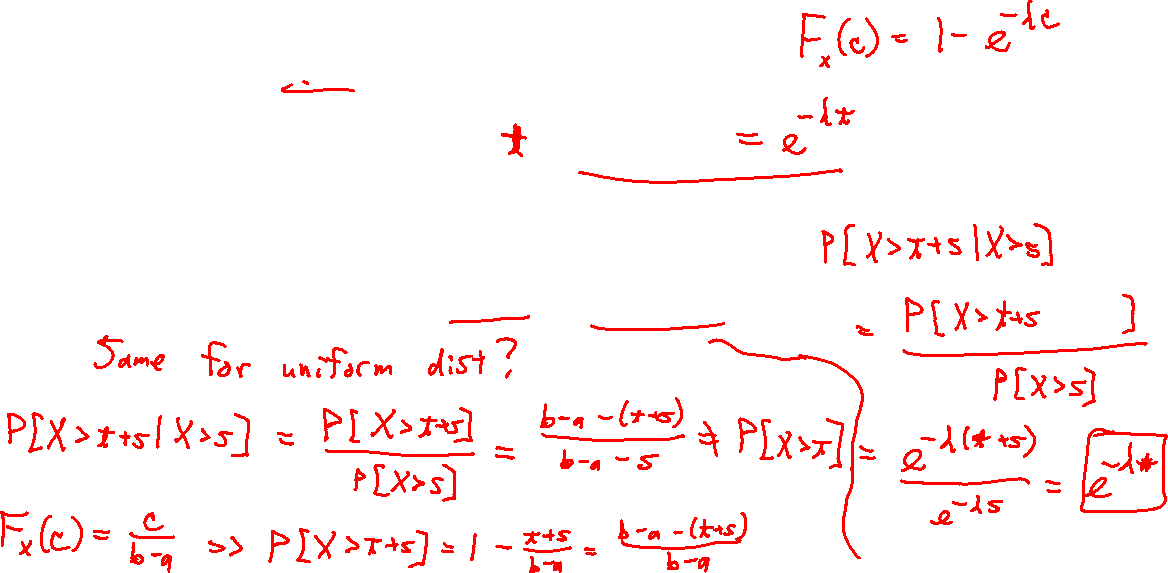 F_x(c) = 1 - e^{-λc}
t = e^{-λt}
P[X>t+s|X>s]
= P[X>t+s ] / P[X>s]
= e^{-λ(t+s)} / e^{-λs} = e^{-λt}
Same for uniform dist?
P[X>t+s|X>s] = P[X>t+s] / P[X>s] = b-a-(t+s) / b-a-s ≠ P[X>t]
F_x(c) = c / b-a => P[X>t+s] = 1 - t+s / b-a = b-a-(t+s) / b-a